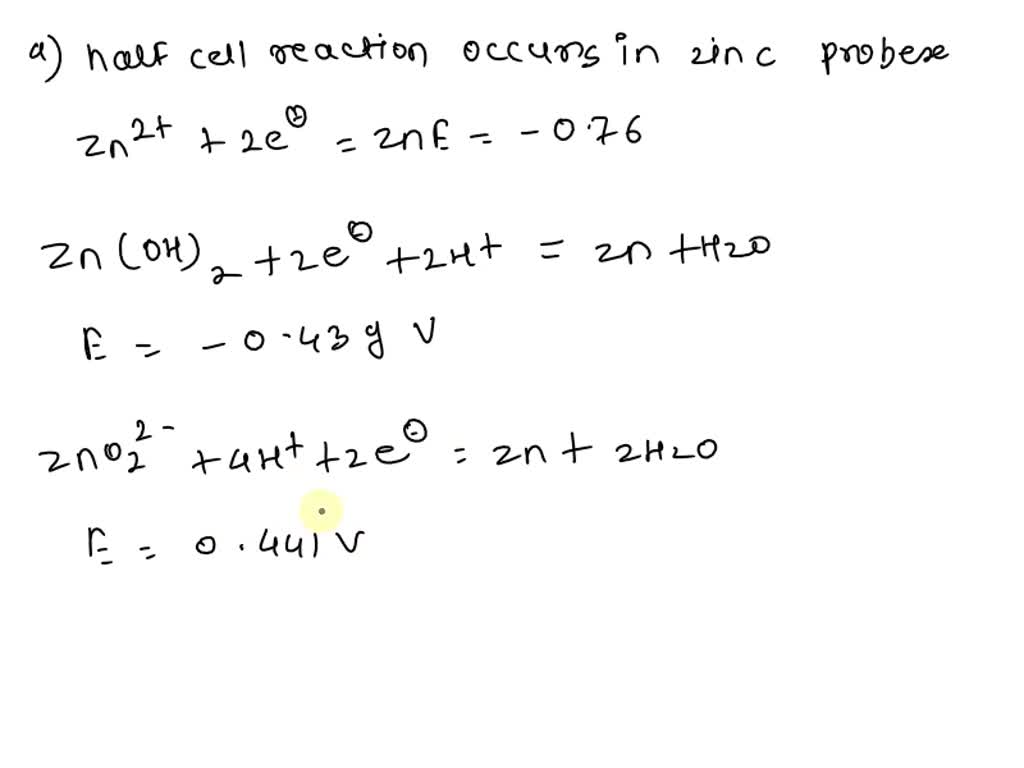 a) half cell reaction occurs in zinc probese
Zn²⁺ + 2e⊖ = ZnE = -0.76
Zn(OH)₂ + 2e⊖ + 2H⁺ = Zn + H2O
E = -0.43g V
ZnO₂²⁻ + 4H⁺ + 2e⊖ = Zn + 2H2O
E = 0.441 V